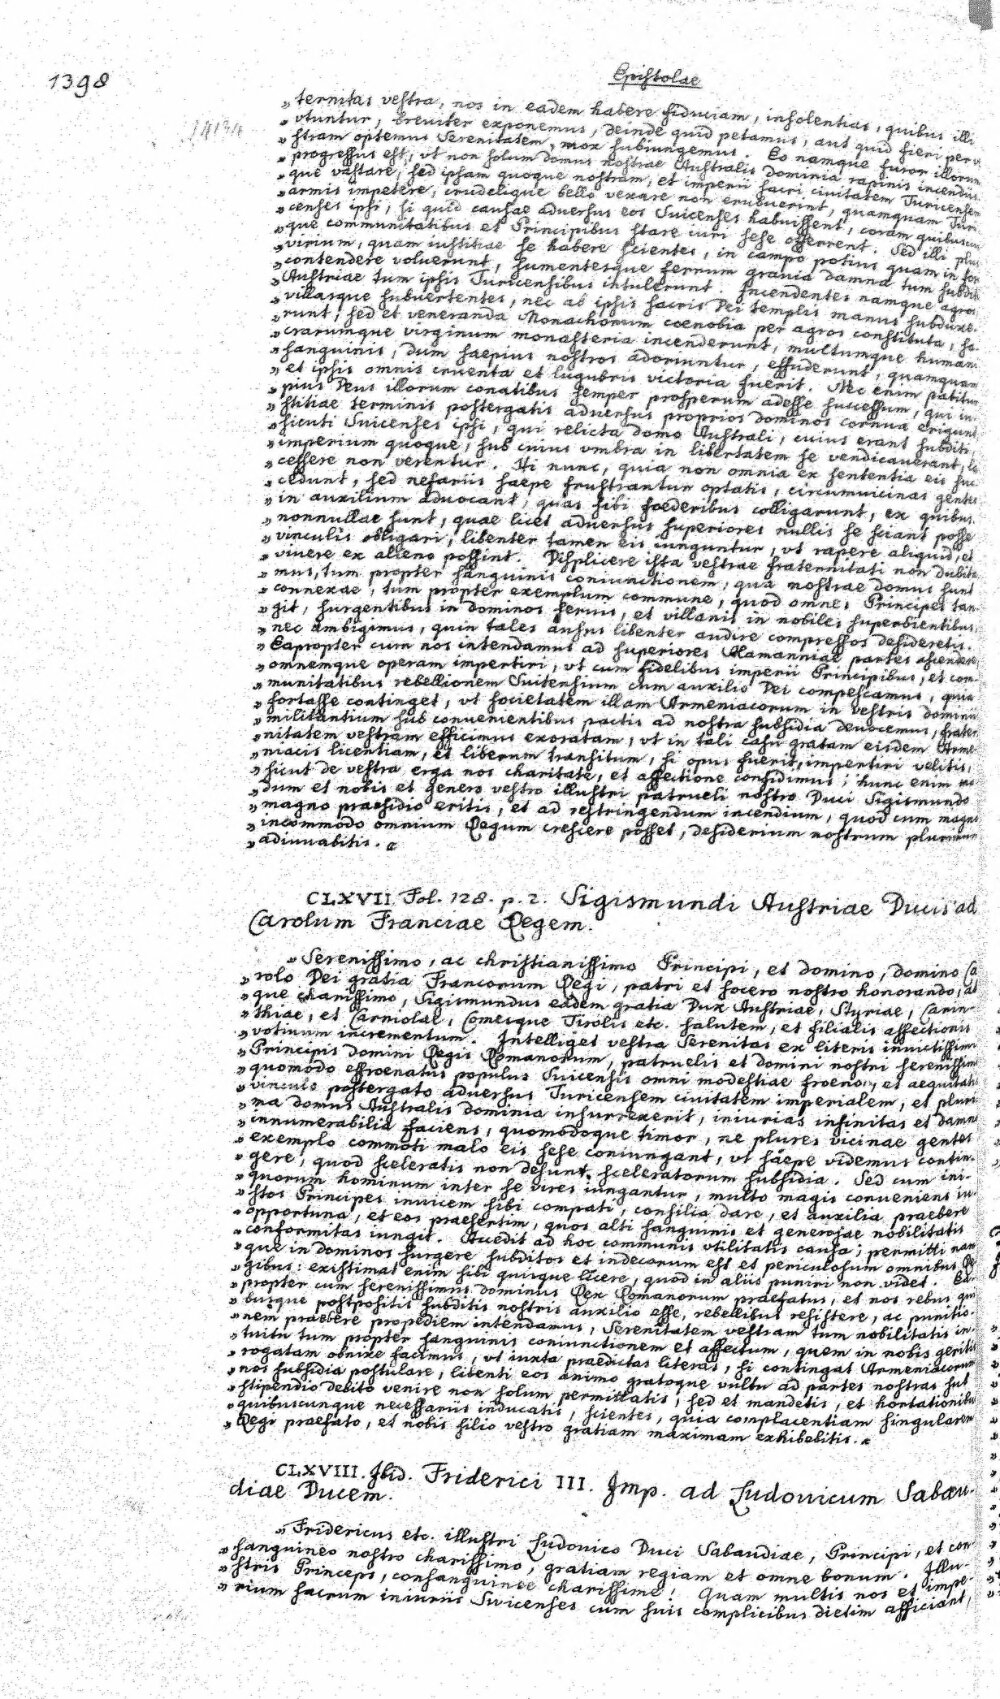 1398
Epistolae
„ ternitas vestra, nos in eadem habere fiduciam, insolentias, quibus illi
„ vtuntur, breuiter exponemus, deinde quid petamus, aut quid fieri per v
„ stram optemus Serenitatem, mox subiungemus. Eo namque furor illorum
„ progressus est, vt non solum domus nostrae Australis dominia rapinis incendiis
„ que vastare, sed ipsam quoque nostram, et imperii sacri ciuitatem Turicensem
„ armis impetere, crudelique bello vexare non erubuerint, quamquam Turi
„ censes ipsi, si quid causae aduersus eos Suicenses habuissent, coram quibuscun
„ que communitatibus et Principibus stare iuri sese offerrent. Sed illi plus
„ virium, quam iustitiae se habere scientes, in campo potius quam in iure
„ contendere voluerunt, sumentesque ferrum grauia damna tum subditis
„ Austriae tum ipsis Turicensibus intulerunt. Incendentes namque agros
„ villasque subuertentes, nec ab ipsis sacris Dei templis manus subduxe-
„ runt, sed et veneranda Monachorum coenobia per agros constituta, sa-
„ crarumque virginum monasteria incenderunt, multumque humani
„ sanguinis, dum saepius nostros adoriuntur, effuderunt, quamquam
„ et ipsis omnis cruenta et lugubris victoria fuerit. Nec enim patitur
„ pius Deus illorum conatibus semper prosperum adesse successum, qui iu-
„ stitiae terminis postergatis aduersus proprios dominos cornua erigunt
„ sicuti Suicenses ipsi, qui relicta domo Australi, cuius erant subditi,
„ imperium quoque, sub cuius vmbra in libertatem se vendicauerant, la
„ cessere non verentur. Hi nunc, quia non omnia ex sententia eis suc
„ cedunt, sed nefariis saepe frustrantur optatis, circumuicinas gentes
„ in auxilium aduocant, quas sibi foederibus colligarunt, ex quibus
„ nonnullae sunt, quae licet aduersus superiores nullis se sciant posse
„ vinculis obligari, libenter tamen eis iunguntur, vt rapere aliquid, et
„ viuere ex alieno possint. Displicere ista vestrae fraternitati non dubita
„ mus, tum propter sanguinis coniunctionem, qua nostrae domus sunt
„ connexae, tum propter exemplum commune, quod omnes Principes tan-
„ git, surgentibus in dominos seruis, et villanis in nobiles superbientibus,
„ nec ambigimus, quin tales ausus libenter audire compressos desideretis.
„ Eapropter cum nos intendamus ad superiores Alamanniae partes ascendere
„ omnemque operam impertiri, vt cum fidelibus imperii Principibus, et com
„ munitatibus rebellionem Suitensium cum auxilio Dei compescamus, quia
„ fortasse continget, vt societatem illam Armeniacorum in vestris dominiis
„ militantium sub conuenientibus pactis ad nostra subsidia deuocemus, frater
„ nitatem vestram efficimus exoratam, vt in tali casu gratam eisdem Arme
„ niacis licentiam, et liberum transitum, si opus fuerit, impertiri velitis,
„ sicut de vestra erga nos charitate, et affectione confidimus; hunc enim mo
„ dum et nobis et genero vestro illustri patrueli nostro Duci Sigismundo
„ magno praesidio eritis, et ad restringendum incendium, quod cum magno
„ incommodo omnium Regum crescere posset, desiderium nostrum plurimum
„ adiuuabitis. „
CLXVII. Fol. 128. p. 2. Sigismundi Austriae Ducis ad
Carolum Franciae Regem.
„ Serenissimo, ac christianissimo Principi, et domino, domino Ca
„ rolo Dei gratia Francorum Regi, patri et socero nostro honorando, at
„ que charissimo, Sigismundus eadem gratia Dux Austriae, Styriae, Carin-
„ thiae, et Carniolae, Comesque Tirolis etc. salutem, et filialis affectionis
„ votiuum incrementum. Intelliget vestra Serenitas ex literis inuictissimi
„ Principis domini Regis Romanorum, patruelis et domini nostri serenissimi
„ quomodo effroenatus populus Suicensis omni modestiae froeno, et aequitatis
„ vinculo postergato aduersus Turicensem ciuitatem imperialem, et pluri
„ ma domus Australis dominia insurrexerit, iniurias infinitas et damna
„ innumerabilia faciens, quomodoque timor, ne plures vicinae gentes
„ exemplo commoti malo eis sese coniungant, vt saepe videmus contin-
„ gere, quod sceleratis non desunt sceleratorum subsidia. Sed cum ini-
„ quorum hominum inter se vires iungantur, multo magis conueniens iu-
„ stos Principes inuicem sibi compati, consilia dare, et auxilia praebere
„ opportuna, et eos praesertim, quos alti sanguinis et generosae nobilitatis
„ conformitas iungit. Accedit ad hoc communis vtilitatis causa; permitti nam
„ que in dominos surgere subditos et indecorum est et periculosum omnibus Re
„ gibus: existimat enim sibi quisque licere, quod in aliis puniri non videt. Ea
„ propter cum serenissimus dominus Rex Romanorum praefatus, et nos rebus qui
„ busque postpositis subditis nostris auxilio esse, rebellibus resistere, ac punitio-
„ nem praebere propediem intendamus, Serenitatem vestram tum nobilitatis in-
„ tuitu tum propter sanguinis coniunctionem et affectum, quem in nobis geritis
„ rogatam obnixe facimus, vt iuxta praedictas literas, si contingat Armeniacorum
„ nos subsidia postulare, libenti eos animo gratoque vultu ad partes nostras sub
„ stipendio debito venire non solum permittatis, sed et mandetis, et hortationibus
„ quibuscunque necessariis inducatis, scientes, quia complacentiam singularem
„ Regi praefato, et nobis filio vestro gratiam maximam exhibebitis. „
CLXVIII. Ibid. Friderici III. Imp. ad Ludouicum Sabau-
diae Ducem.
„ Fridericus etc. illustri Ludouico Duci Sabaudiae, Principi, et con
„ sanguineo nostro charissimo, gratiam regiam et omne bonum. Illu-
„ stris Princeps, consanguinee charissime! Quam multis nos et impe-
„ rium sacrum iniuriis Swicenses cum suis complicibus dietim afficiant,